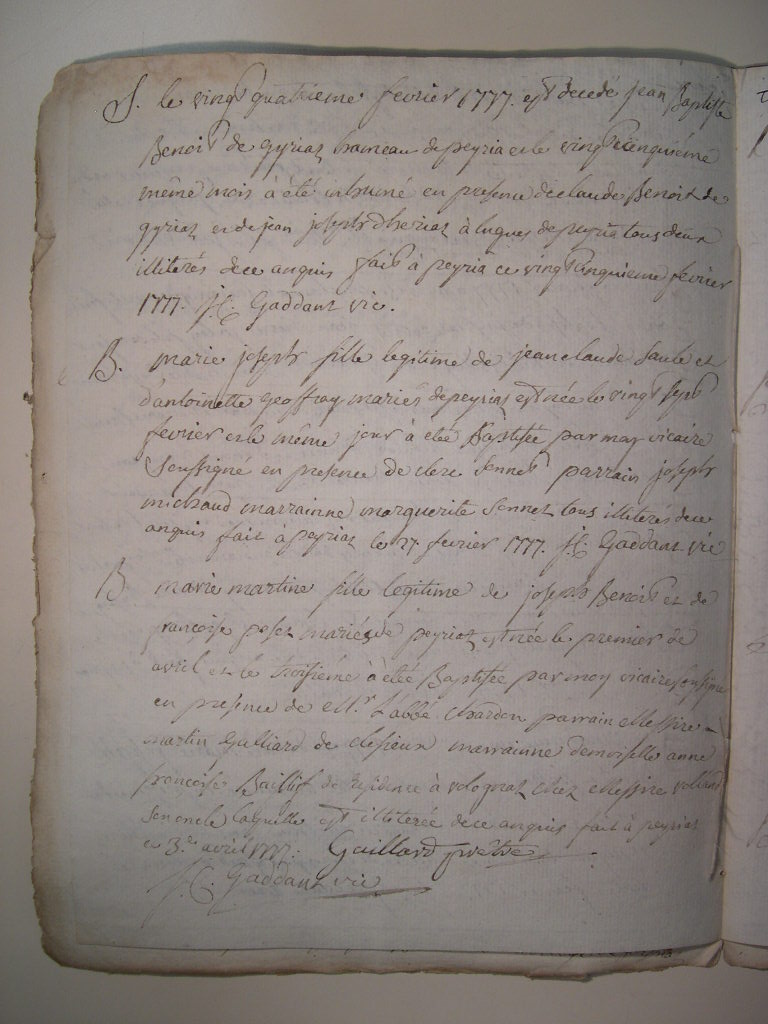 S. le vingt quatrieme fevrier 1777. est decedé jean Baptiste
Benoit de gyriaz hameau de peyria et le vingt cinquieme
même mois à été inhumé en presence de claude Benoit de
gyriaz et de jean joseph dheriaz à luques de peyria tous deux
illiterés de ce anquis fait à peyria ce vingt cinquieme fevrier
1777. j. C. Gaddant vic.
B. marie joseph fille legitime de jean claude saule et
d'antoinette geoffray mariés de peyriaz est née le vingt sept
fevrier et le même jour à eté Baptisée par moy vicaire
soussigné en presence de clerc sennet parrain joseph
michaud marrainne marguerite sennet tous illiterés de ce
anquis fait à peyriaz le 27. fevrier 1777. j. C. Gaddant vic
B marie martine fille legitime de joseph Benoit et de
françoise poset mariés de peyriaz est née le premier de
avril et le troisiéme à étée Baptisée par moy vicaire soussigné
en presence de Mr. L'abbé chardon parrain Messire
martin Gulliard de clesieux marrainne demoiselle anne
françoise Baillif de residence à volognat chez Messire volland
son oncle laquelle est illiterée de ce anquis fait à peyriaz
ce 3.e avril 1777. Gaillard pretre
j. C. Gaddant vic